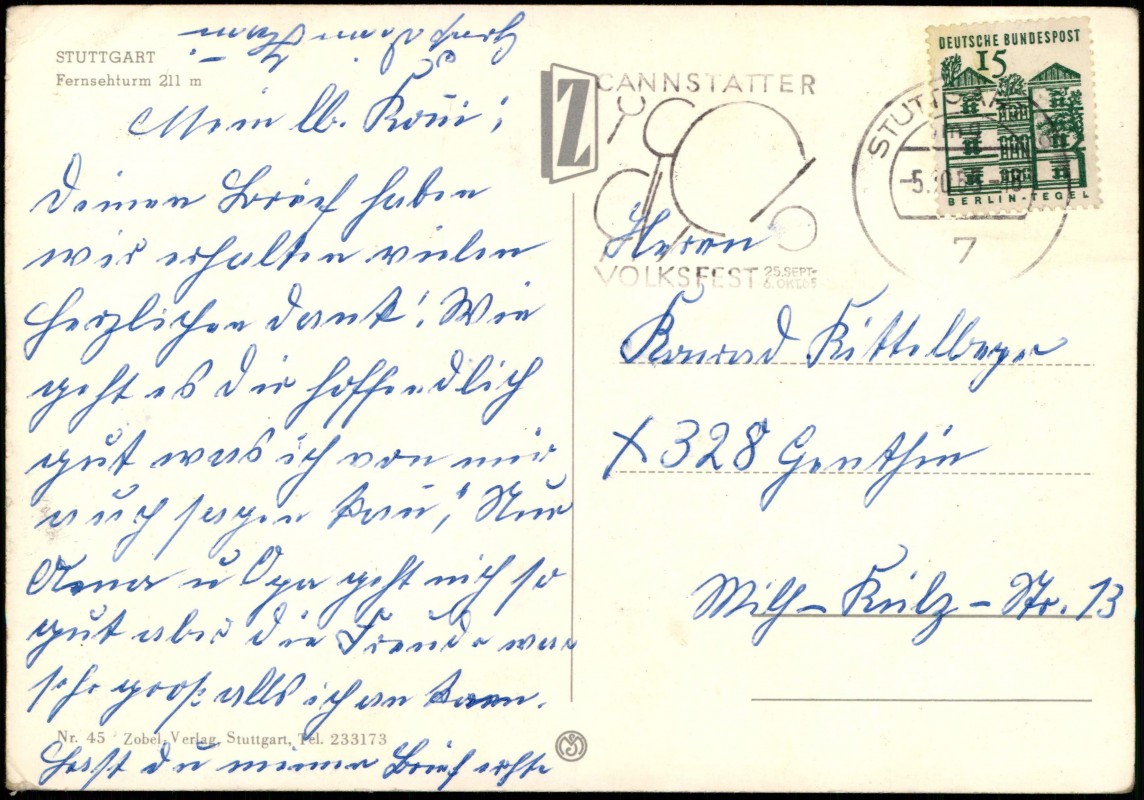 STUTTGART
Fernsehturm 211 m
Mein lb. Koni!
Deinen Brief haben
wir erhalten vielen
herzlichen Dank! Wie
geht es Dir hoffendlich
gut was ich von mir
auch sagen kan! Nur
u Opa geht nich so
gut aber die Freude war
sehr groß alls ich an kam.
Hast Du meine Brief
Nr. 45 Zobel Verlag, Stuttgart, Tel. 233173
Z
CANNSTATTER
VOLKSFEST 25.SEPT-
6.OKT.65
STUTTGART
-5.10.
7
DEUTSCHE BUNDESPOST
15
BERLIN-TEGEL
Herrn
Konrad Kittelberger
X 328 Genthin
Wilh-Külz-Str. 13